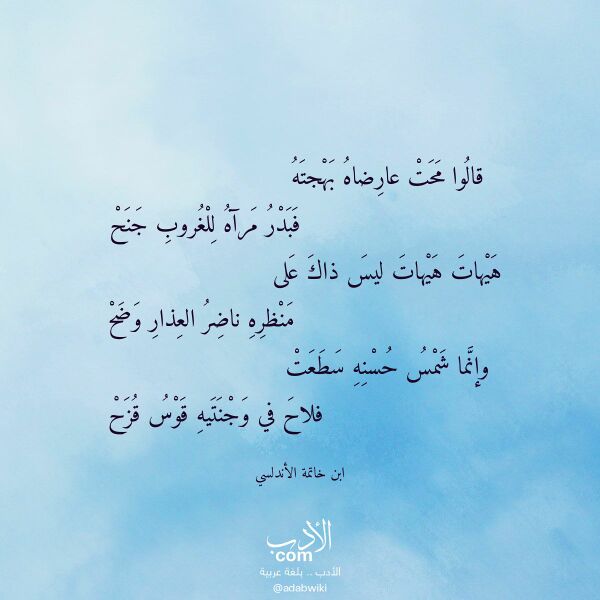 قالُوا مَحَتْ عارِضاهُ بَهْجتَهُ
فَبَدْرُ مَرآهُ لِلْغُروبِ جَنَحْ
هَيْهاتَ هَيْهاتَ ليسَ ذاكَ عَلى
مَنْظرِهِ ناضِرُ العِذارِ وَضَحْ
وإنَّما شَمْسُ حُسْنِهِ سَطَعَتْ
فلاحَ في وَجْنَتَيهِ قَوْسُ قُزَحْ
ابن خاتمة الأندلسي
الأدب
com
الأدب .. بلغة عربية
@adabwiki